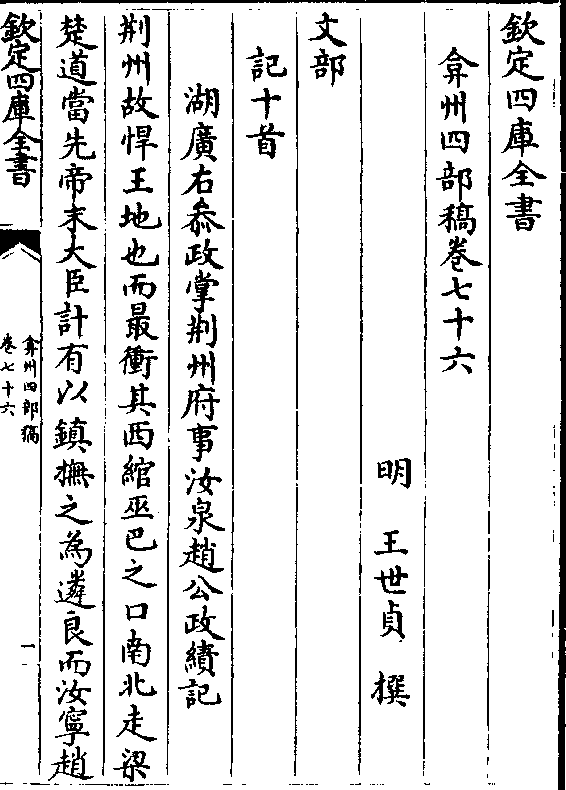 欽定四庫全書
弇州四部稿卷七十六
明　王世貞　撰
文部
記十首
湖廣右叅政掌荆州府事汝泉趙公政績記
荆州故悍王地也而最衝其西綰巫巴之口南北走梁
楚道當先帝末大臣計有以鎮撫之為遴良而汝寧趙
欽定四庫全書
弇州四部稿
卷七十六
一